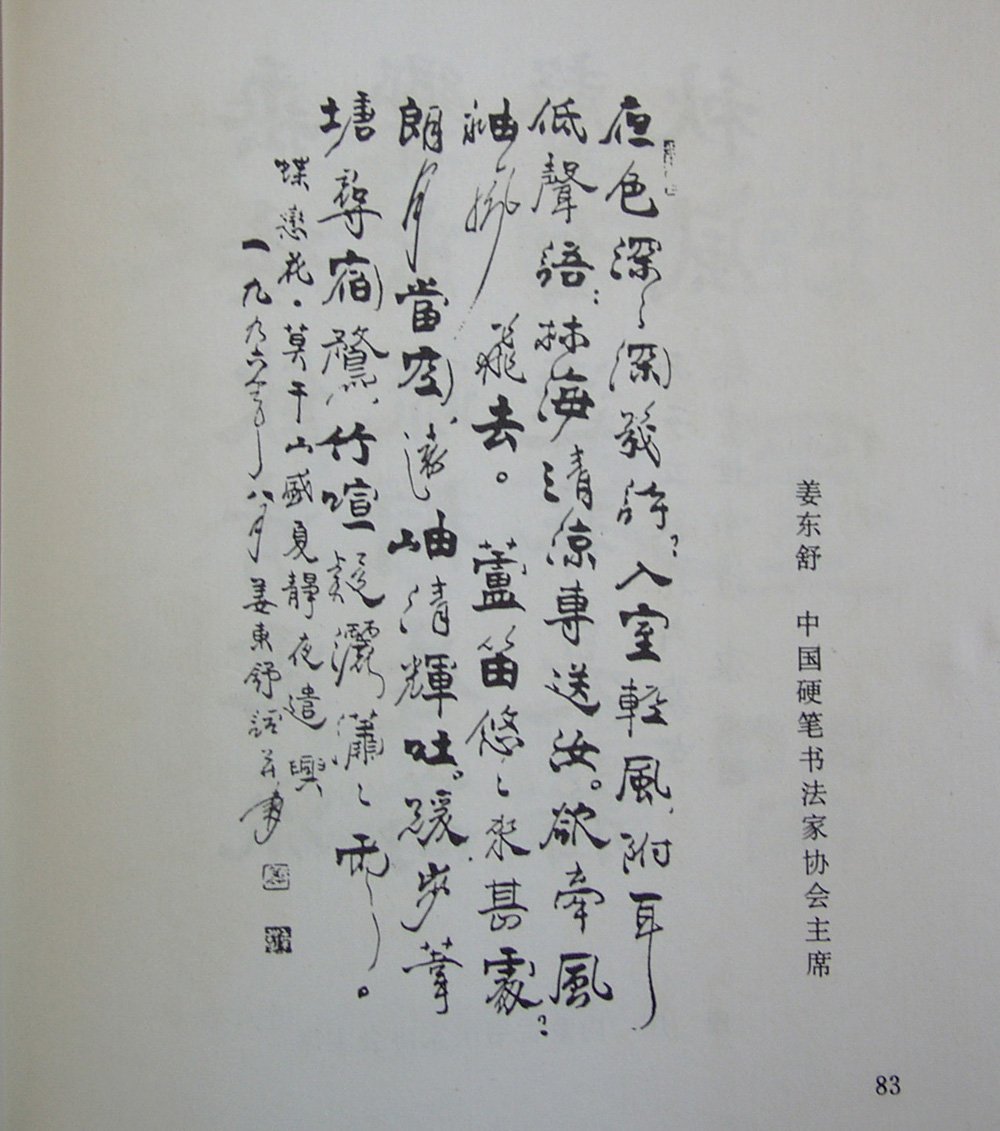 姜东舒　中国硬笔书法家协会主席
夜色深〻深幾許？入室輕風，附耳
低聲語：林海清涼專送汝。欲牽風
袖風飛去。　蘆笛悠〻來甚處？
朗月當空，遠岫清輝吐。緩步葦
塘尋宿鷺，竹喧疑灑瀟〻雨。
蝶戀花·莫干山盛夏靜夜遣興
一九九六年八月姜東舒詞並書
83